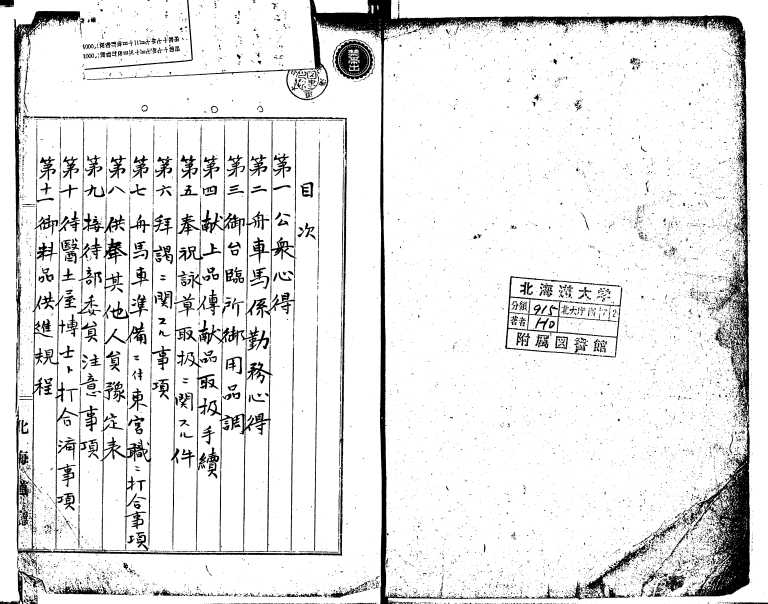 目次
第一 公衆心得
第二 舟車馬係勤務心得
第三 御台臨所御用品調
第四 献上品傳献品取扱手續
第五 奉祝詠草取扱ニ関スル件
第六 拜謁ニ関スル事項
第七 舟馬車準備ニ付東宮職ニ打合事項
第八 供奉其他人員豫定表
第九 接待部委員注意事項
第十 侍醫土屋博士ト打合済事項
第十一 御料品供進規程
北海道
北海道大学
分類 915
著者 HO
附属図書館